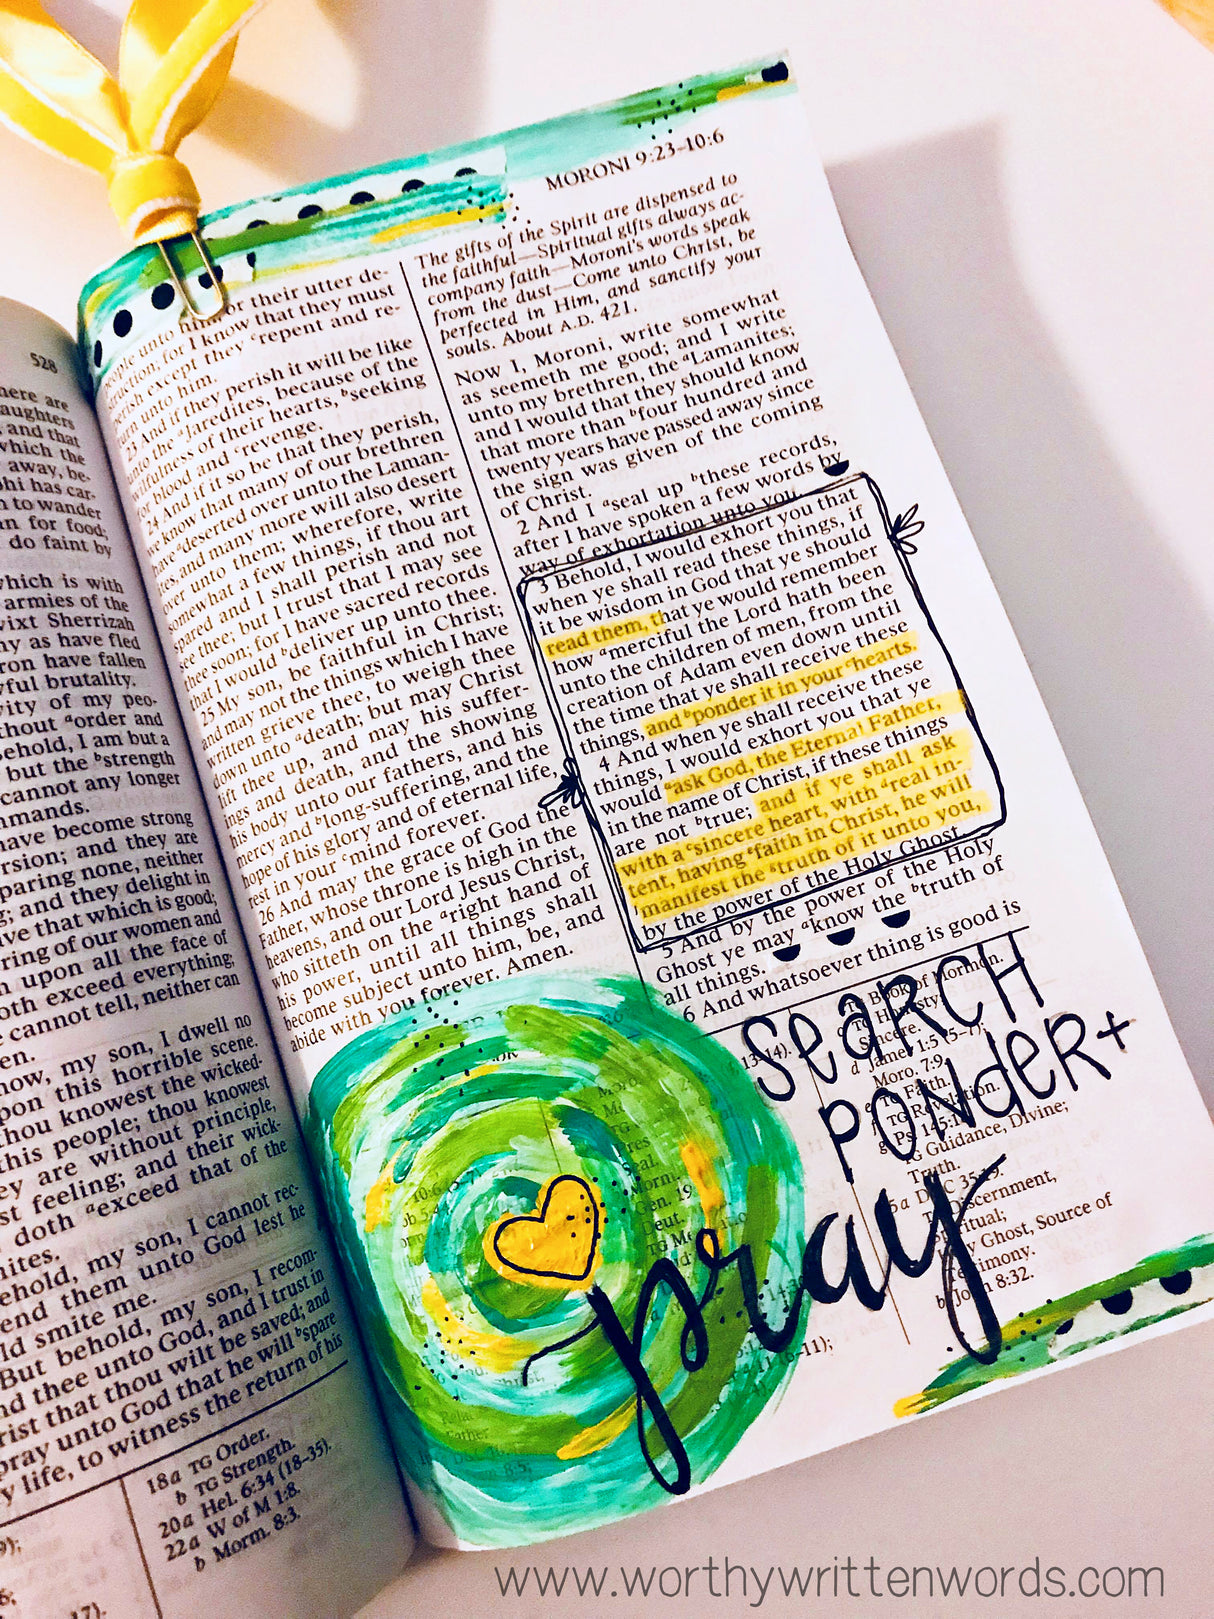 528
here are
aughters
and that
which the
away, be-
hi has car-
n to wander
an for food;
do faint by
which is with
armies of the
vixt Sherrizah
ny as have fled
ron have fallen
ful brutality.
vity of my peo-
thout ᵃorder and
ehold, I am but a
but the ᵇstrength
cannot any longer
mmands.
have become strong
rsion; and they are
paring none, neither
g; and they delight in
ve that which is good;
ring of our women and
n upon all the face of
oth exceed everything;
e cannot tell, neither can
en.
now, my son, I dwell no
pon this horrible scene.
thou knowest the wicked-
this people; thou knowest
ey are without principle,
st feeling; and their wick-
doth ᵃexceed that of the
nites.
ehold, my son, I cannot rec-
end them unto God lest he
ld smite me.
But behold, my son, I recom-
nd thee unto God, and I trust in
rist that thou wilt be saved; and
pray unto God that he will ᵇspare
y life, to witness the return of his
18a TG Order.
b TG Strength.
20a Hel. 6:34 (18–35).
22a W of M 1:8.
b Morm. 8:3.
MORONI 9:23–10:6
people unto him, or their utter de-
struction; for I know that they must
perish except they ᶜrepent and re-
turn unto him.
23 And if they perish it will be like
unto the ᵃJaredites, because of the
wilfulness of their hearts, ᵇseeking
for blood and ᶜrevenge.
24 And if it so be that they perish,
we know that many of our brethren
have ᵃdeserted over unto the Laman-
ites, and many more will also desert
over unto them; wherefore, write
somewhat a few things, if thou art
spared and I shall perish and not
see thee; but I trust that I may see
thee soon; for I have sacred records
that I would ᵇdeliver up unto thee.
25 My son, be faithful in Christ;
and may not the things which I have
written grieve thee, to weigh thee
down unto ᵃdeath; but may Christ
lift thee up, and may his suffer-
ings and death, and the showing
his body unto our fathers, and his
mercy and ᵇlong-suffering, and the
hope of his glory and of eternal life,
rest in your ᶜmind forever.
26 And may the grace of God the
Father, whose throne is high in the
heavens, and our Lord Jesus Christ,
who sitteth on the ᵃright hand of
his power, until all things shall
become subject unto him, be, and
abide with you forever. Amen.
The gifts of the Spirit are dispensed to
the faithful—Spiritual gifts always ac-
company faith—Moroni's words speak
from the dust—Come unto Christ, be
perfected in Him, and sanctify your
souls. About A.D. 421.
Now I, Moroni, write somewhat
as seemeth me good; and I write
unto my brethren, the ᵃLamanites;
and I would that they should know
that more than ᵇfour hundred and
twenty years have passed away since
the sign was given of the coming
of Christ.
2 And I ᵃseal up ᵇthese records,
after I have spoken a few words by
way of exhortation unto you.
3 Behold, I would exhort you that
when ye shall read these things, if
it be wisdom in God that ye should
read them, that ye would remember
how ᵃmerciful the Lord hath been
unto the children of men, from the
creation of Adam even down until
the time that ye shall receive these
things, and ᵇponder it in your ᶜhearts.
4 And when ye shall receive these
things, I would exhort you that ye
would ᵃask God, the Eternal Father,
in the name of Christ, if these things
are not ᵇtrue; and if ye shall ask
with a ᶜsincere heart, with ᵈreal in-
tent, having ᵉfaith in Christ, he will
ᶠmanifest the ᵍtruth of it unto you,
by the power of the Holy Ghost.
5 And by the power of the Holy
Ghost ye may ᵃknow the ᵇtruth of
all things.
6 And whatsoever thing is good is
TG Book of Mormon.
c TG Honesty;
Sincere.
d James 1:5 (5–7);
Moro. 7:9.
e TG Faith.
f TG Revelation.
g Ps. 145:18
TG Guidance, Divine;
Truth.
5a D&C 35:19.
TG Discernment,
Spiritual;
Holy Ghost, Source of
Testimony.
b John 8:32.
SeaRCH
PONdeR+
pray
www.worthywrittenwords.com